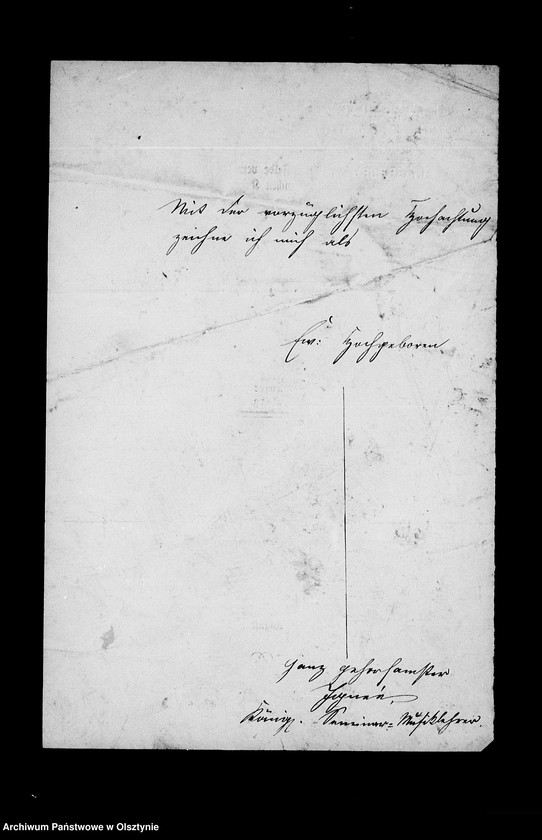 Mit der vorzüglichsten Hochachtung
zeichne ich mich als
Ew: Hochgeboren
ganz gehorsamster
Königl. Seminar-Musiklehrer.
Archiwum Państwowe w Olsztynie